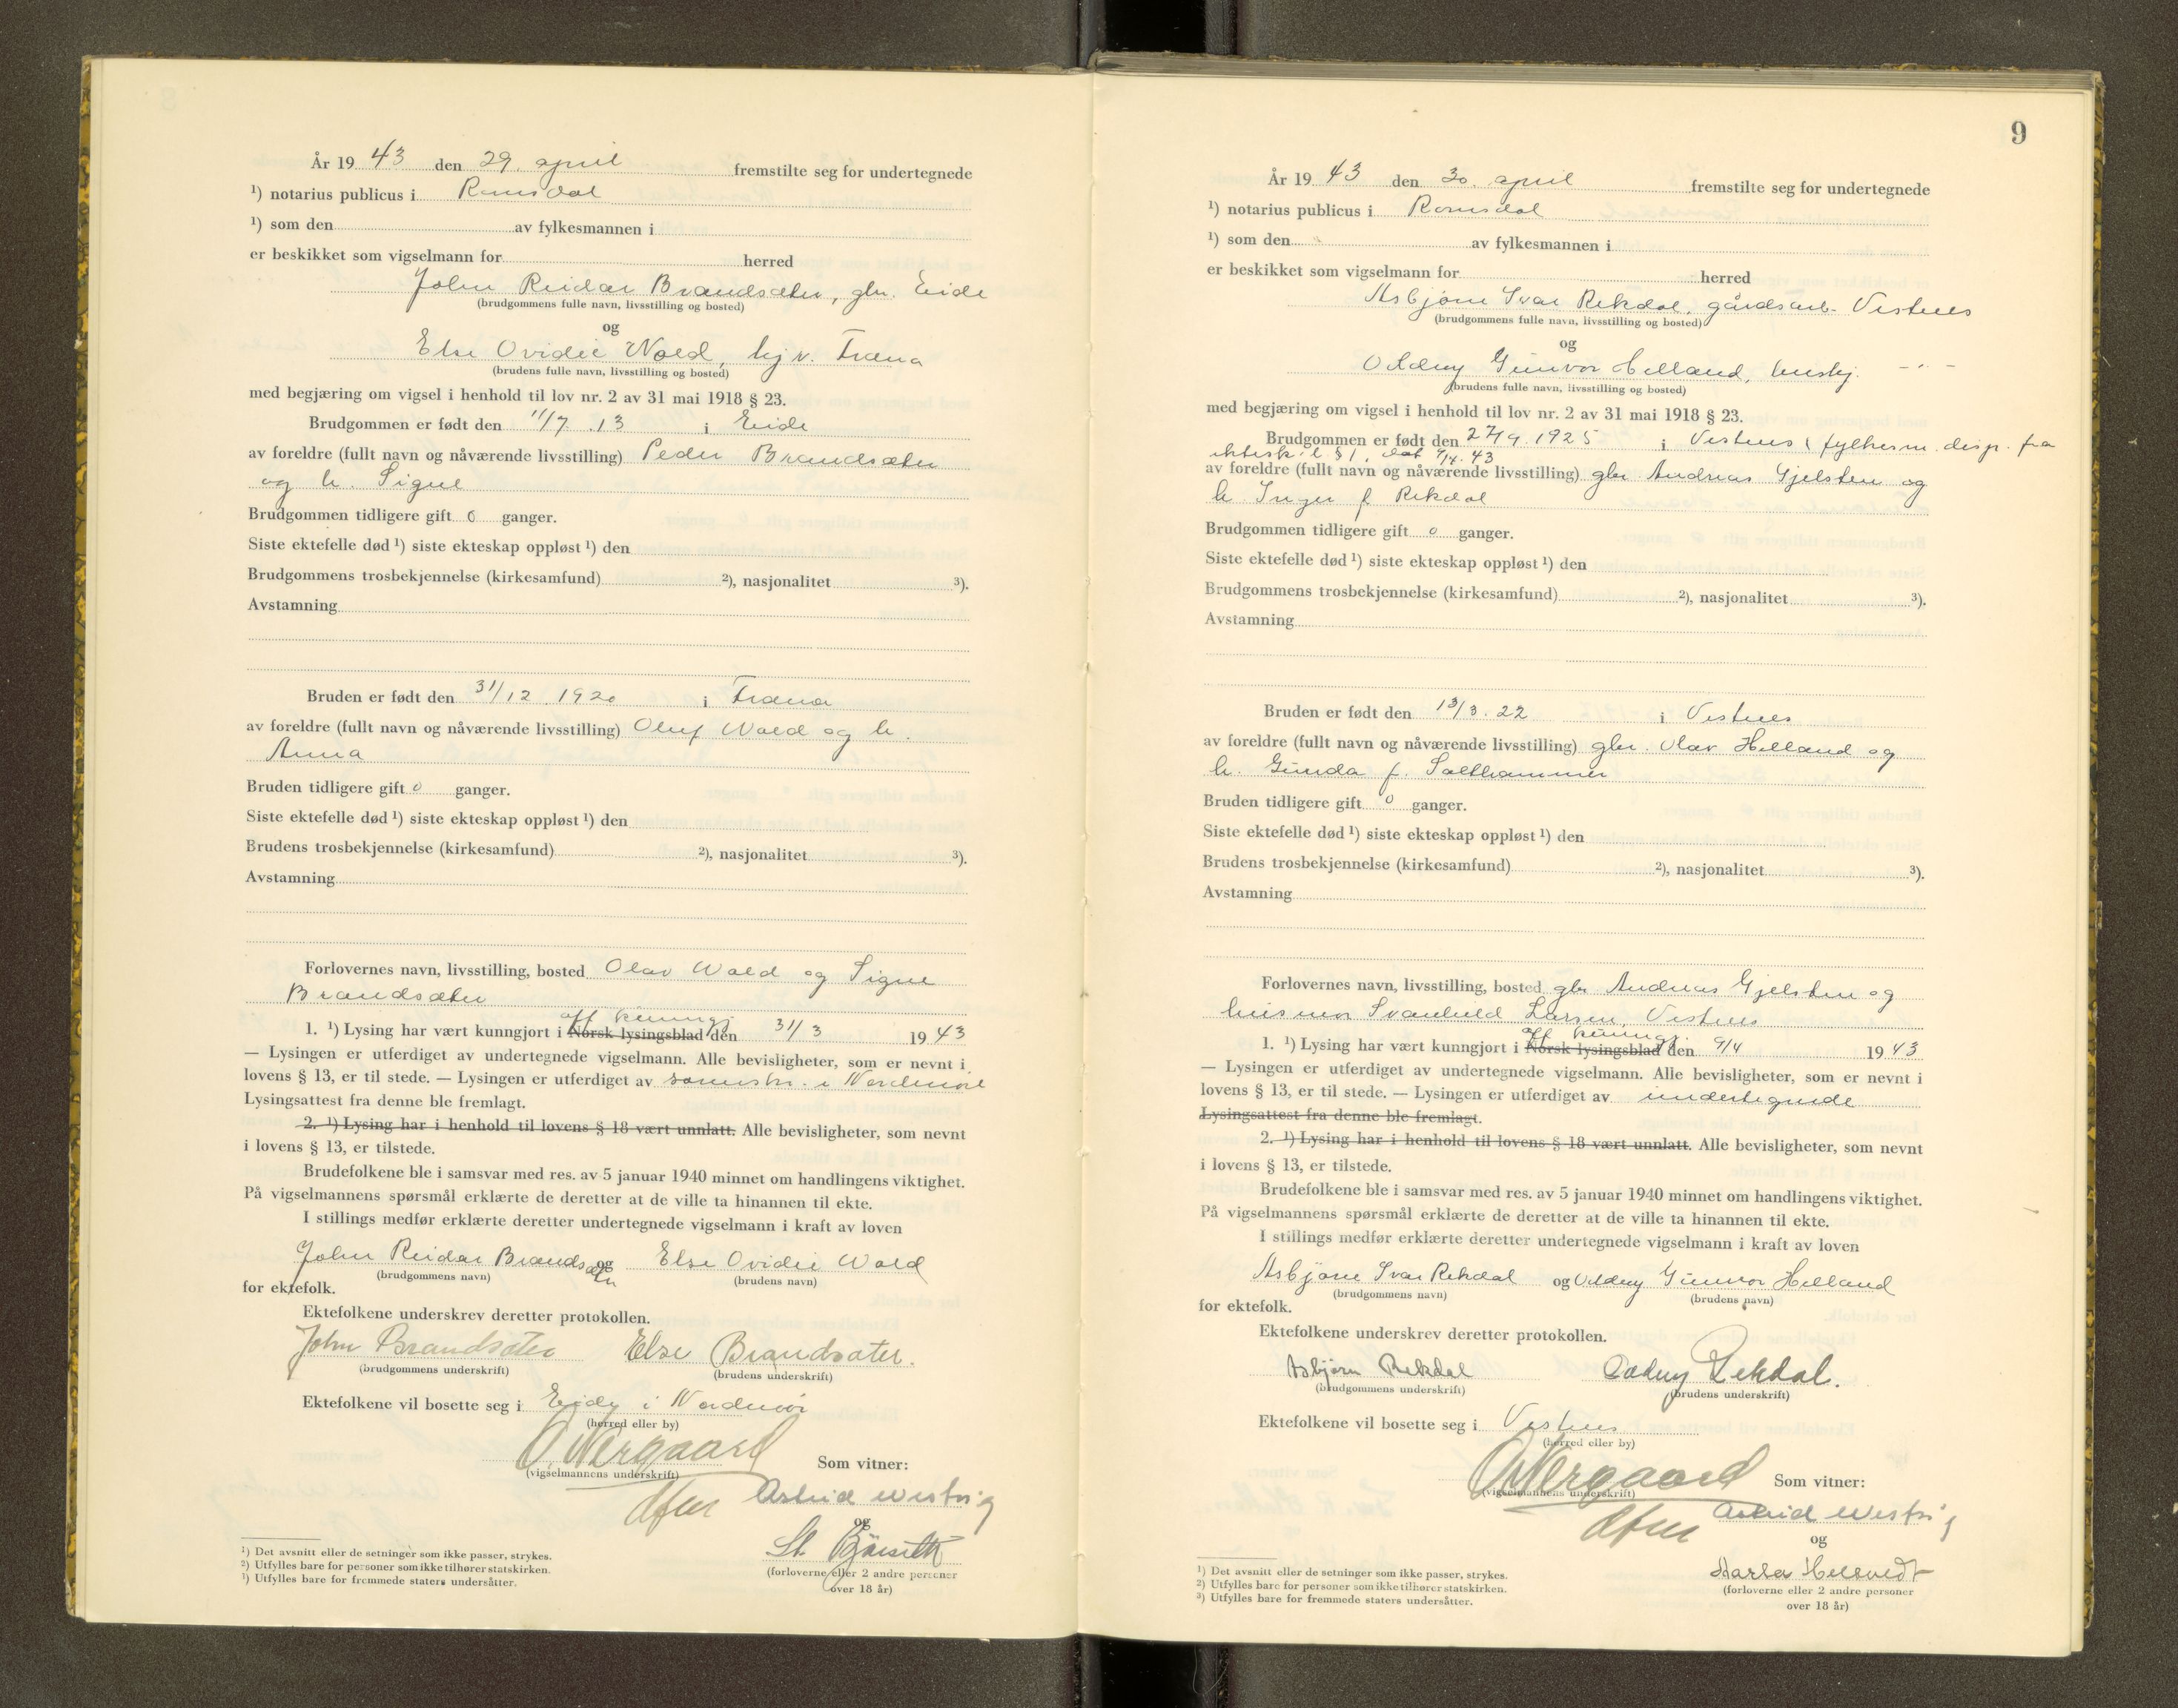 År 19 43 den 29. april fremstilte seg for undertegnede
¹) notarius publicus i Romsdal
¹) som den av fylkesmannen i
er beskikket som vigselmann for herred
John Reidar Brandsæter, gbr. Eide
(brudgommens fulle navn, livsstilling og bosted)
og
Else Ovidie Wold, hj.v. Fræna
(brudens fulle navn, livsstilling og bosted)
med begjæring om vigsel i henhold til lov nr. 2 av 31 mai 1918 § 23.
Brudgommen er født den 11/7 .13 i Eide
av foreldre (fullt navn og nåværende livsstilling) Peder Brandsæter
og h. Signe
Brudgommen tidligere gift 0 ganger.
Siste ektefelle død ¹) siste ekteskap oppløst ¹) den
Brudgommens trosbekjennelse (kirkesamfund) ²), nasjonalitet ³).
Avstamning
Bruden er født den 31/12 1920 i Fræna
av foreldre (fullt navn og nåværende livsstilling) Oluf Wold og h.
Anna
Bruden tidligere gift 0 ganger.
Siste ektefelle død ¹) siste ekteskap oppløst ¹) den
Brudens trosbekjennelse (kirkesamfund) ²), nasjonalitet ³).
Avstamning
Forlovernes navn, livsstilling, bosted Olav Wold og Signe
Brandsæter
off. kunngj.
1. ¹) Lysing har vært kunngjort i Norsk lysingsblad den 31/3 19 43
— Lysingen er utferdiget av undertegnede vigselmann. Alle bevisligheter, som er nevnt i
lovens § 13, er til stede. — Lysingen er utferdiget av sorenskr. i Nordmøre
Lysingsattest fra denne ble fremlagt.
2. ¹) Lysing har i henhold til lovens § 18 vært unnlatt. Alle bevisligheter, som nevnt
i lovens § 13, er tilstede.
Brudefolkene ble i samsvar med res. av 5 januar 1940 minnet om handlingens viktighet.
På vigselmannens spørsmål erklærte de deretter at de ville ta hinannen til ekte.
I stillings medfør erklærte deretter undertegnede vigselmann i kraft av loven
John Reidar Brandsæter og Else Ovidie Wold
(brudgommens navn) (brudens navn)
for ektefolk.
Ektefolkene underskrev deretter protokollen.
John Brandsæter Else Brandsæter.
(brudgommens underskrift) (brudens underskrift)
Ektefolkene vil bosette seg i Eide i Nordmør
(herred eller by)
O. Nergaard
(vigselmannens underskrift) Som vitner:
dfm Astrid Westvig
og
St. Bjørseth
(forloverne eller 2 andre personer
over 18 år)
¹) Det avsnitt eller de setninger som ikke passer, strykes.
²) Utfylles bare for personer som ikke tilhører statskirken.
³) Utfylles bare for fremmede staters undersåtter.
9
År 19 43 den 30. april fremstilte seg for undertegnede
¹) notarius publicus i Romsdal
¹) som den av fylkesmannen i
er beskikket som vigselmann for herred
Asbjørn Ivar Rekdal, gårdsarb. Vestnes
(brudgommens fulle navn, livsstilling og bosted)
og
Oddny Gunvor Helland, hushj. - " -
(brudens fulle navn, livsstilling og bosted)
med begjæring om vigsel i henhold til lov nr. 2 av 31 mai 1918 § 23.
Brudgommen er født den 27/9 1925 i Vestnes (fylkesm. disp. fra
ektesk. l. § 1, dat 9/4. 43
av foreldre (fullt navn og nåværende livsstilling) gbr Andreas Gjelsten og
h. Inger f. Rekdal
Brudgommen tidligere gift 0 ganger.
Siste ektefelle død ¹) siste ekteskap oppløst ¹) den
Brudgommens trosbekjennelse (kirkesamfund) ²), nasjonalitet ³).
Avstamning
Bruden er født den 13/3. 22 i Vestnes
av foreldre (fullt navn og nåværende livsstilling) gbr. Olav Helland og
h. Gunda f. Salthammer
Bruden tidligere gift 0 ganger.
Siste ektefelle død ¹) siste ekteskap oppløst ¹) den
Brudens trosbekjennelse (kirkesamfund) ²), nasjonalitet ³).
Avstamning
Forlovernes navn, livsstilling, bosted gbr Andreas Gjelsten og
husmor Svanhild Larsen, Vestnes
off. kunngj.
1. ¹) Lysing har vært kunngjort i Norsk lysingsblad den 9/4 19 43
— Lysingen er utferdiget av undertegnede vigselmann. Alle bevisligheter, som er nevnt i
lovens § 13, er til stede. — Lysingen er utferdiget av undertegnede
Lysingsattest fra denne ble fremlagt.
2. ¹) Lysing har i henhold til lovens § 18 vært unnlatt. Alle bevisligheter, som nevnt
i lovens § 13, er tilstede.
Brudefolkene ble i samsvar med res. av 5 januar 1940 minnet om handlingens viktighet.
På vigselmannens spørsmål erklærte de deretter at de ville ta hinannen til ekte.
I stillings medfør erklærte deretter undertegnede vigselmann i kraft av loven
Asbjørn Ivar Rekdal og Oddny Gunvor Helland
(brudgommens navn) (brudens navn)
for ektefolk.
Ektefolkene underskrev deretter protokollen.
Asbjørn Rekdal Oddny Rekdal.
(brudgommens underskrift) (brudens underskrift)
Ektefolkene vil bosette seg i Vestnes
(herred eller by)
O. Nergaard
(vigselmannens underskrift) Som vitner:
dfm Astrid Westvig
og
(forloverne eller 2 andre personer
over 18 år)
¹) Det avsnitt eller de setninger som ikke passer, strykes.
²) Utfylles bare for personer som ikke tilhører statskirken.
³) Utfylles bare for fremmede staters undersåtter.